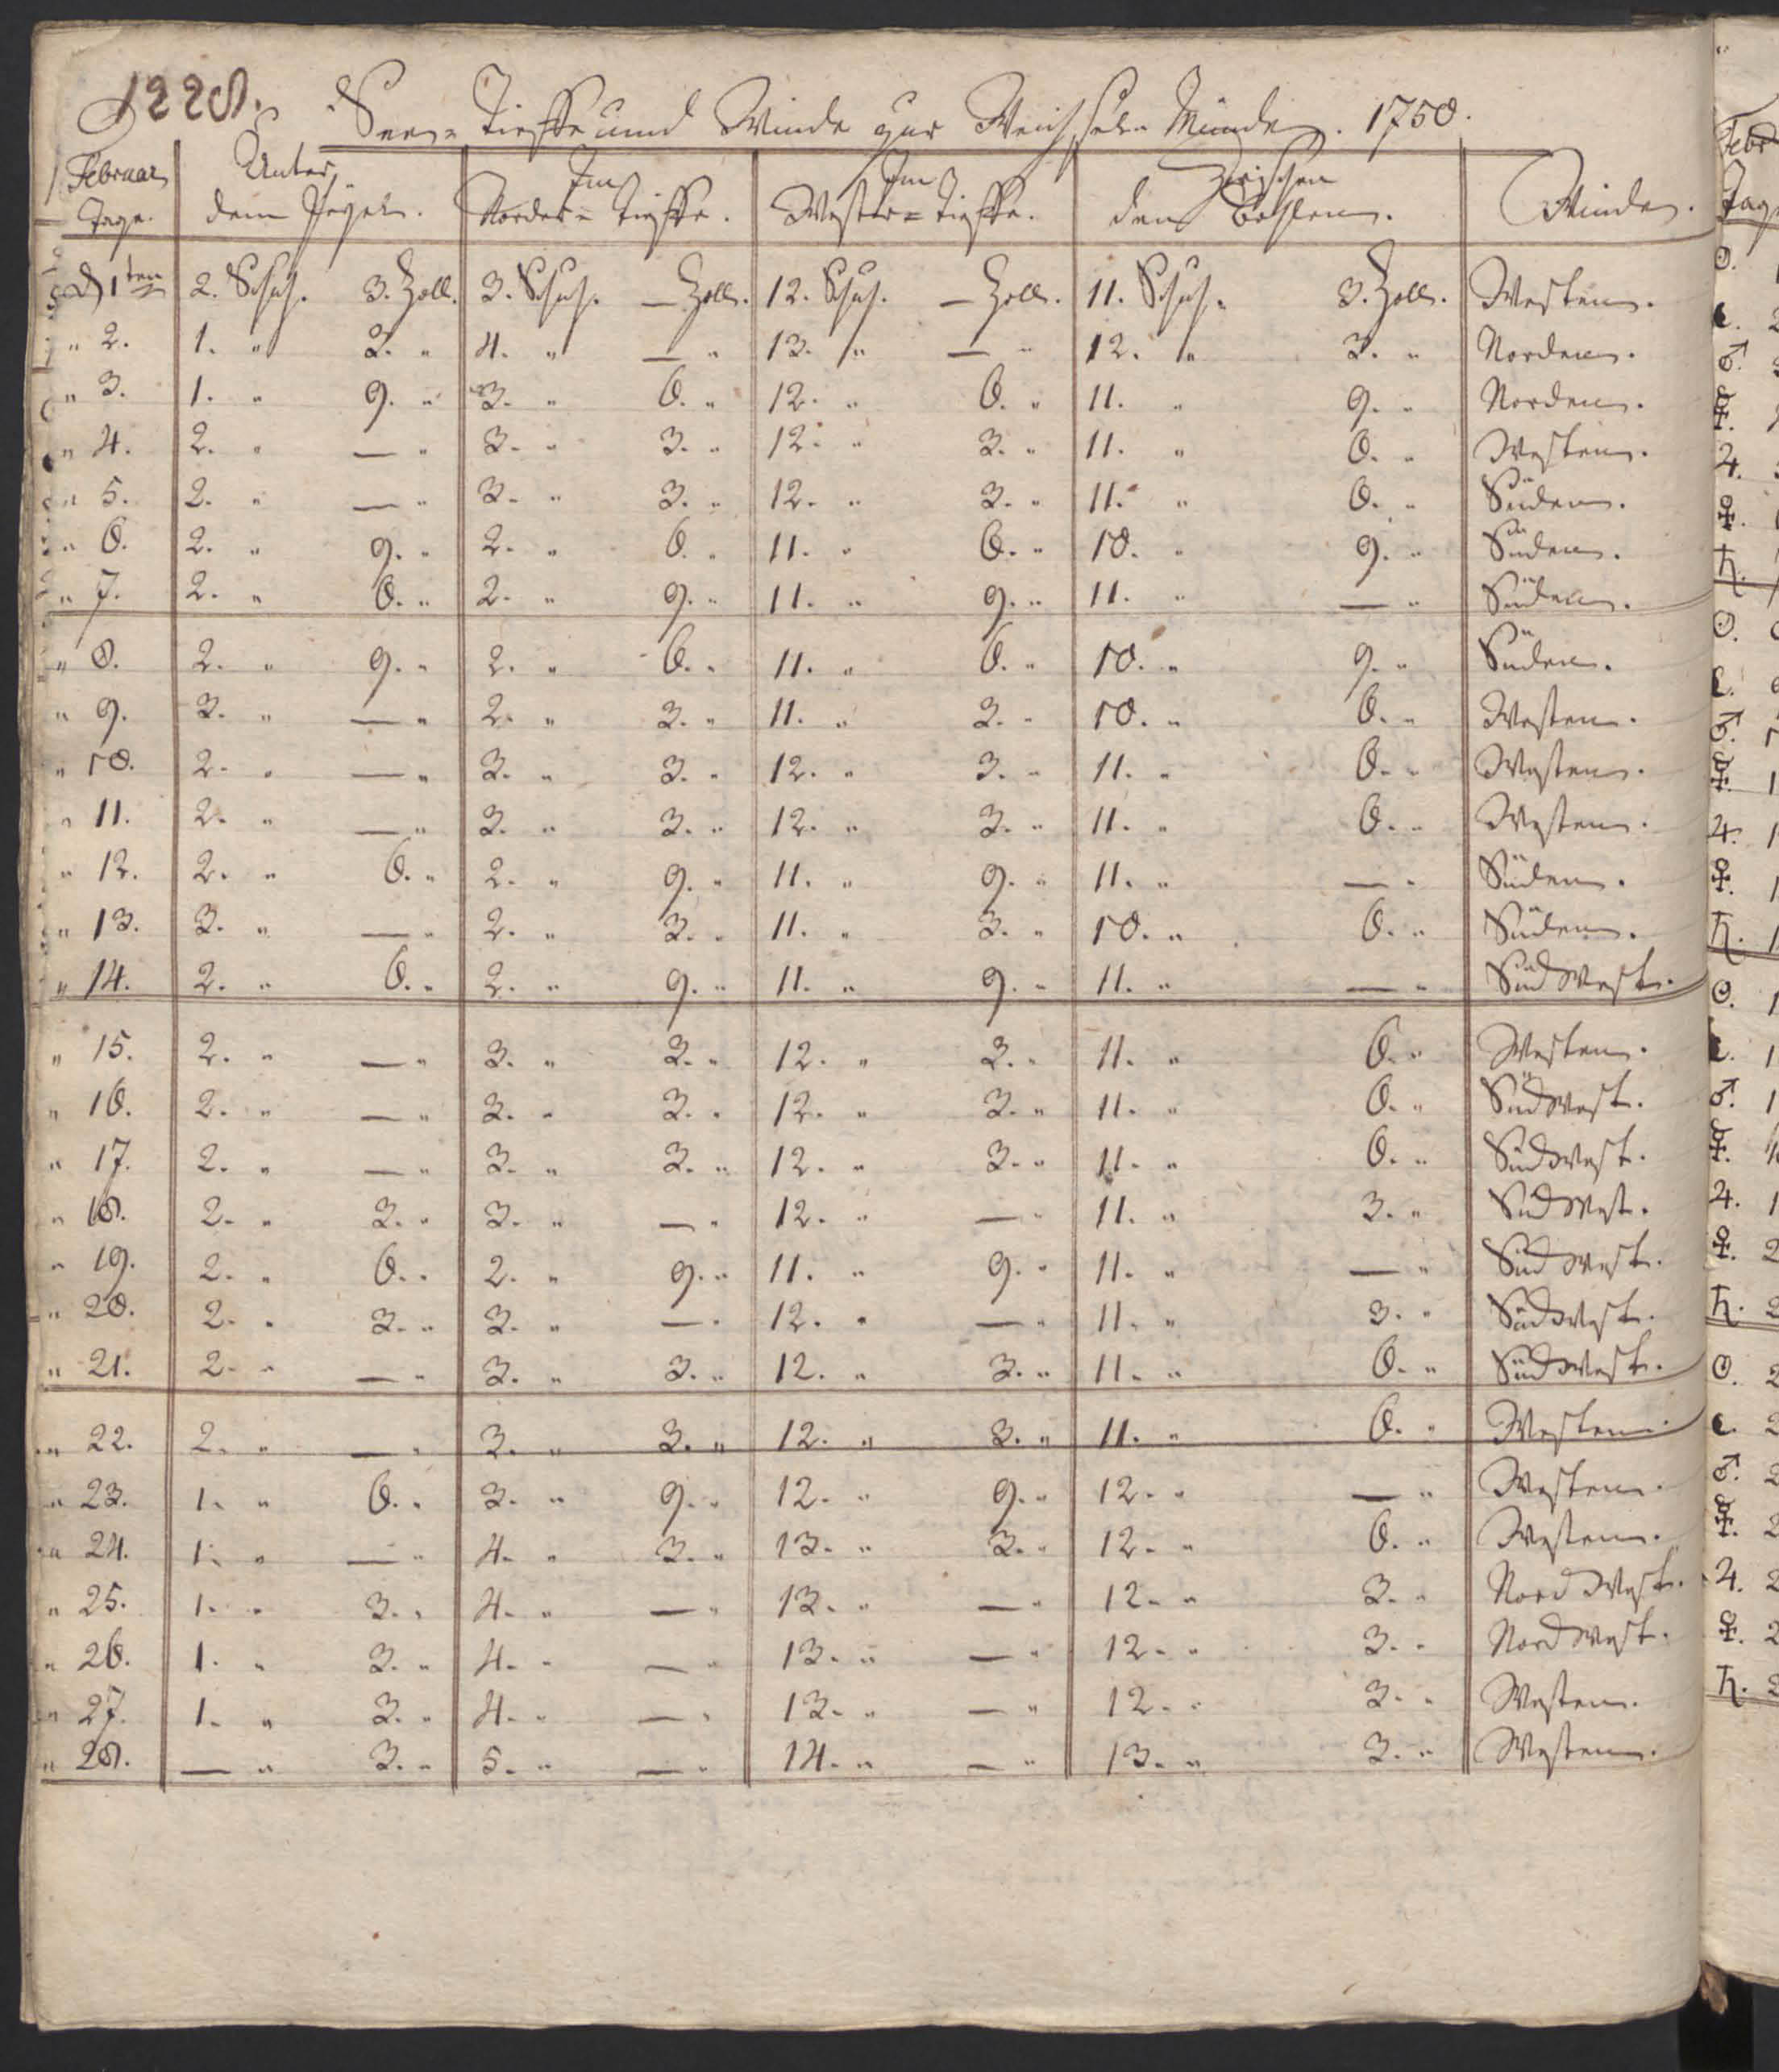 1228. See= Tieffe und Winde zur Weichsel= Münde. 1750.
Februar Unter Im Im Zwischen
Tage. dem Pegel. Norder= Tieffe. Wester= Tieffe. den Bohlen. Winde.
d 1ten 2. Schuh. 3. Zoll. 3. Schuh. — Zoll. 12. Schuh. — Zoll. 11. Schuh. 3. Zoll. Westen.
" 2. 1. " 3. " 4. " — " 13. " — " 12. " 3. " Norden.
" 3. 1. " 9. " 3. " 6. " 12. " 6. " 11. " 9. " Norden.
" 4. 2. " — " 3. " 3. " 12. " 3. " 11. " 6. " Westen.
" 5. 2. " — " 3. " 3. " 12. " 3. " 11. " 6. " Süden.
" 6. 2. " 9. " 2. " 6. " 11. " 6. " 10. " 9. " Süden.
" 7. 2. " 6. " 2. " 9. " 11. " 9. " 11. " — " Süden.
" 8. 2. " 9. " 2. " 6. " 11. " 6. " 10. " 9. " Süden.
" 9. 3. " — " 2. " 3. " 11. " 3. " 10. " 6. " Westen.
" 10. 2. " — " 3. " 3. " 12. " 3. " 11. " 6. " Westen.
" 11. 2. " — " 3. " 3. " 12. " 3. " 11. " 6. " Westen.
" 12. 2. " 6. " 2. " 9. " 11. " 9. " 11. " — " Süden.
" 13. 3. " — " 2. " 3. " 11. " 3. " 10. " 6. " Süden.
" 14. 2. " 6. " 2. " 9. " 11. " 9. " 11. " — " Süd West.
" 15. 2. " — " 3. " 3. " 12. " 3. " 11. " 6. " Westen.
" 16. 2. " — " 3. " 3. " 12. " 3. " 11. " 6. " Süd West.
" 17. 2. " — " 3. " 3. " 12. " 3. " 11. " 6. " Süd West.
" 18. 2. " 3. " 3. " — " 12. " — " 11. " 3. " Süd West.
" 19. 2. " 6. " 2. " 9. " 11. " 9. " 11. " — " Süd West.
" 20. 2. " 3. " 3. " — " 12. " — " 11. " 3. " Süd West.
" 21. 2. " — " 3. " 3. " 12. " 3. " 11. " 6. " Süd West.
" 22. 2. " — " 3. " 3. " 12. " 3. " 11. " 6. " Westen.
" 23. 1. " 6. " 3. " 9. " 12. " 9. " 12. " — " Westen.
" 24. 1. " — " 4. " 3. " 13. " 3. " 12. " 6. " Westen.
" 25. 1. " 3. " 4. " — " 13. " — " 12. " 3. " Nord West.
" 26. 1. " 3. " 4. " — " 13. " — " 12. " 3. " Nord West.
" 27. 1. " 3. " 4. " — " 13. " — " 12. " 3. " Westen.
" 28. — " 3. " 5. " — " 14. " — " 13. " 3. " Westen.